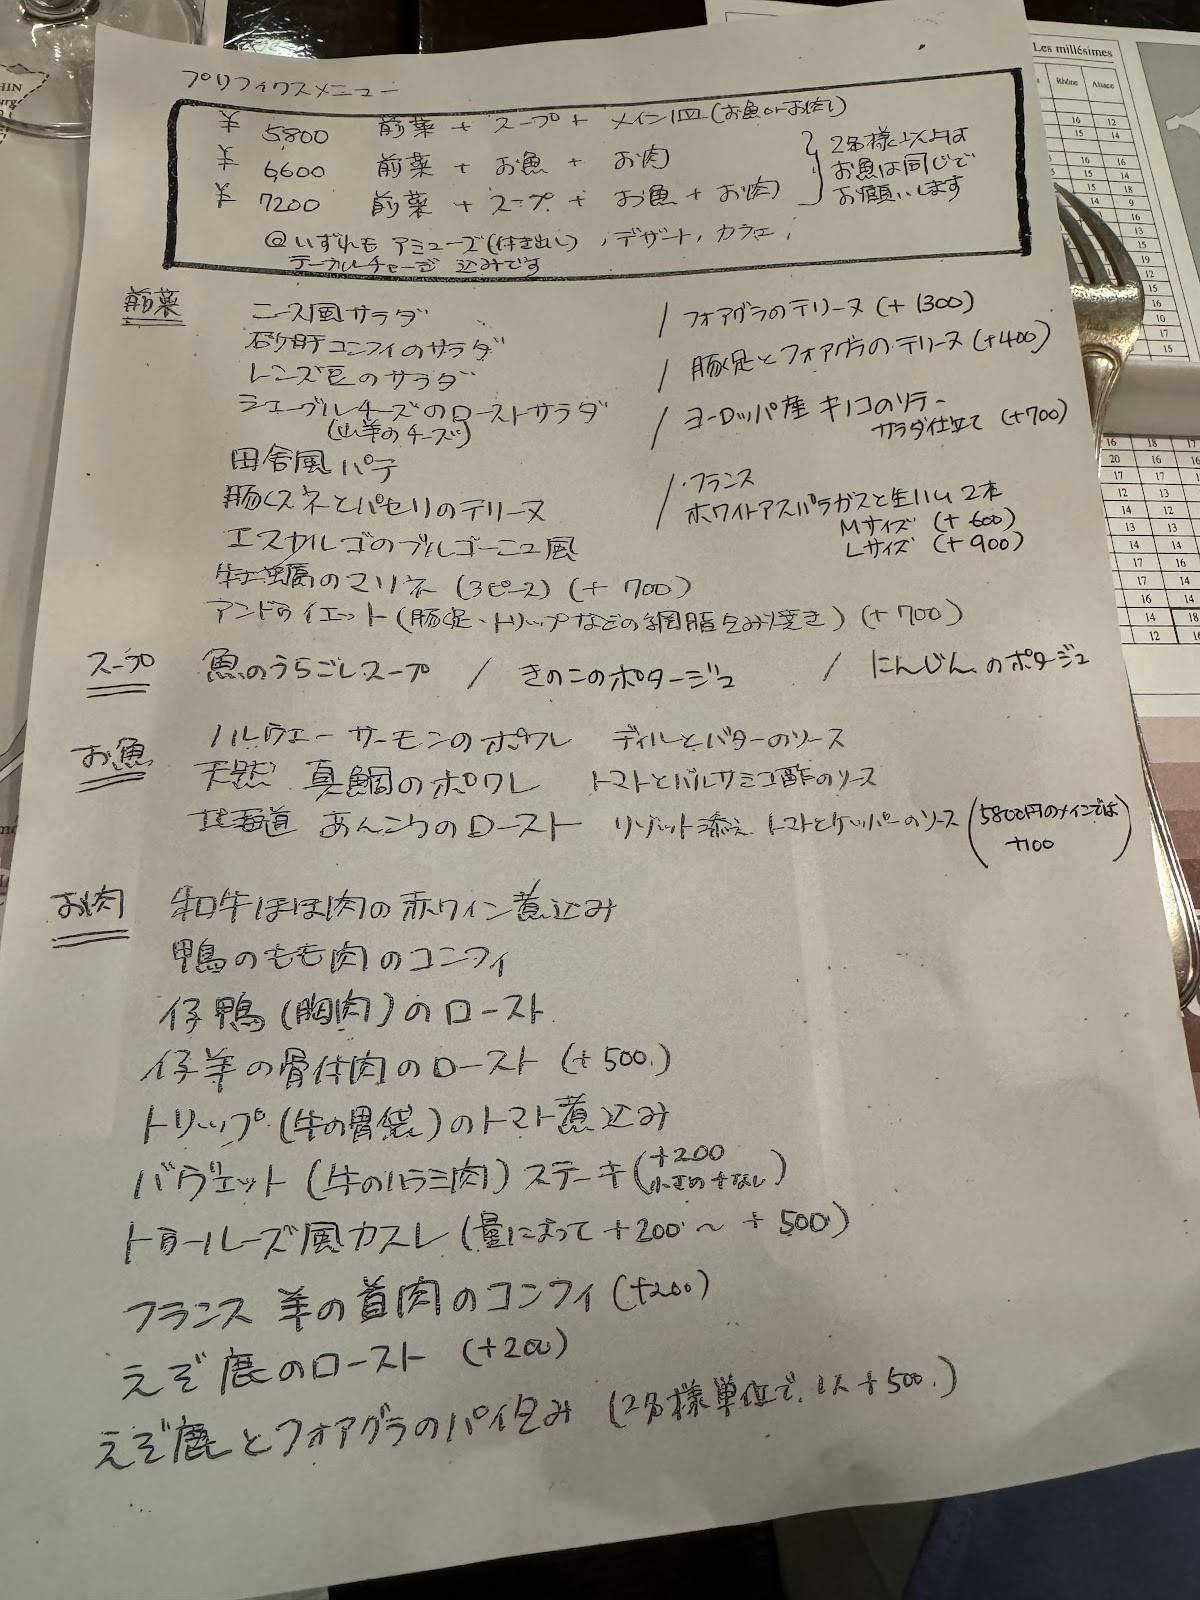 プリフィクスメニュー
¥ 5,800 前菜 + スープ + メイン1皿(お魚orお肉)
¥ 6,600 前菜 + お魚 + お肉
¥ 7200 前菜 + スープ + お魚 + お肉
2名様以上は
お魚は同じで
お願いします
@いずれも アミューズ(付き出し), デザート, カフェ,
テーブルチャージ 込みです
前菜
ニース風サラダ
砂肝コンフィのサラダ
レンズ豆のサラダ
シェーヴルチーズのローストサラダ
(山羊のチーズ)
田舎風パテ
豚スネとパセリのテリーヌ
エスカルゴのブルゴーニュ風
牡蠣のマリネ (3ピース) (+ 700)
アンドゥイエット(豚足・トリップなどの網脂包み焼き) (+ 700)
/ フォアグラのテリーヌ (+ 1300)
/ 豚足とフォアグラのテリーヌ (+400)
/ ヨーロッパ産 キノコのソテー
サラダ仕立て (+700)
/ ・フランス
ホワイトアスパラガスと生ハム 2本
Mサイズ (+ 600)
Lサイズ (+ 900)
スープ 魚のうらごしスープ / きのこのポタージュ / にんじんのポタージュ
お魚
ノルウェーサーモンのポワレ ディルとバターのソース
天然 真鯛のポワレ トマトとバルサミコ酢のソース
北海道 あんこうのロースト リゾット添え トマトとケッパーのソース (5800円のメインでは
+100)
お肉 和牛ほほ肉の赤ワイン煮込み
鴨のもも肉のコンフィ
仔鴨 (胸肉) のロースト
仔羊の骨付肉のロースト (+ 500.)
トリップ (牛の胃袋) のトマト煮込み
バヴェット (牛のハラミ肉) ステーキ (+200
小さめ+なし)
トゥールーズ風カスレ (量によって +200 〜 + 500)
フランス 羊の首肉のコンフィ (+200)
えぞ鹿のロースト (+200)
えぞ鹿とフォアグラのパイ包み (2名様単位で. 1人+500.)
Les millésimes
Rhône
Alsace